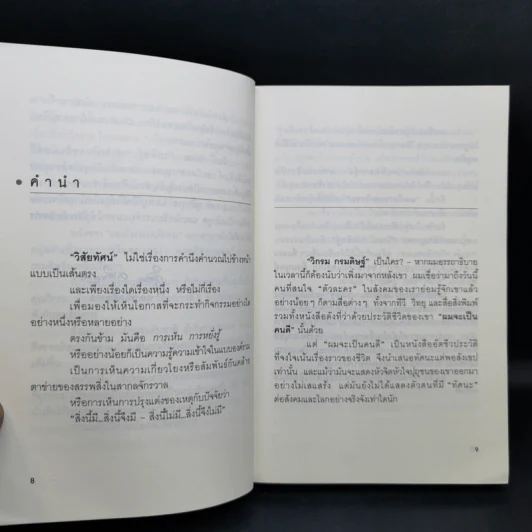 คำนำ
"วิสัยทัศน์" ไม่ใช่เรื่องการคำนึงคำนวณไปข้างหน้า
แบบเป็นเส้นตรง
และเพียงเรื่องใดเรื่องหนึ่ง หรือไม่กี่เรื่อง
เพื่อมองให้เห็นโอกาสที่จะกระทำกิจกรรมอย่างใด
อย่างหนึ่งหรือหลายอย่าง
ตรงกันข้าม มันคือ การเห็น การหยั่งรู้
หรืออย่างน้อยก็เป็นความรู้ความเข้าใจในแบบองค์รวม
เป็นการเห็นความเกี่ยวโยงหรือสัมพันธ์กันคล้าย
ตาข่ายของสรรพสิ่งในสากลจักรวาล
หรือการเห็นการปรุงแต่งของเหตุกับปัจจัยว่า
"สิ่งนี้มี...สิ่งนี้จึงมี – สิ่งนี้ไม่มี...สิ่งนี้จึงไม่มี"
8
"วิกรม กรมดิษฐ์" เป็นใคร? – หากผมอรรถาธิบาย
ในเวลานี้ก็ต้องนับว่าเพิ่งมาจากหลังเขา ผมเชื่อว่ามาถึงวันนี้
คนที่สนใจ "ตัวละคร" ในสังคมของเราย่อมรู้จักเขาแล้ว
อย่างน้อยๆ ก็ตามสื่อต่างๆ ทั้งจากทีวี วิทยุ และสื่อสิ่งพิมพ์
รวมทั้งหนังสือดังที่ว่าด้วยประวัติชีวิตของเขา "ผมจะเป็น
คนดี" นั้นด้วย
แต่ "ผมจะเป็นคนดี" เป็นหนังสืออัตชีวประวัติ
ที่จงใจเน้นเรื่องราวของชีวิต จึงนำเสนอทัศนะแต่พอสังเขป
เท่านั้น และแม้ว่ามันจะแสดงหัวจิตหัวใจปุถุชนของเขาออกมา
อย่างไม่เสแสร้ง แต่มันยังไม่ได้แสดงตัวตนที่มี "ทัศนะ"
ต่อสังคมและโลกอย่างจริงจังเท่าใดนัก
9